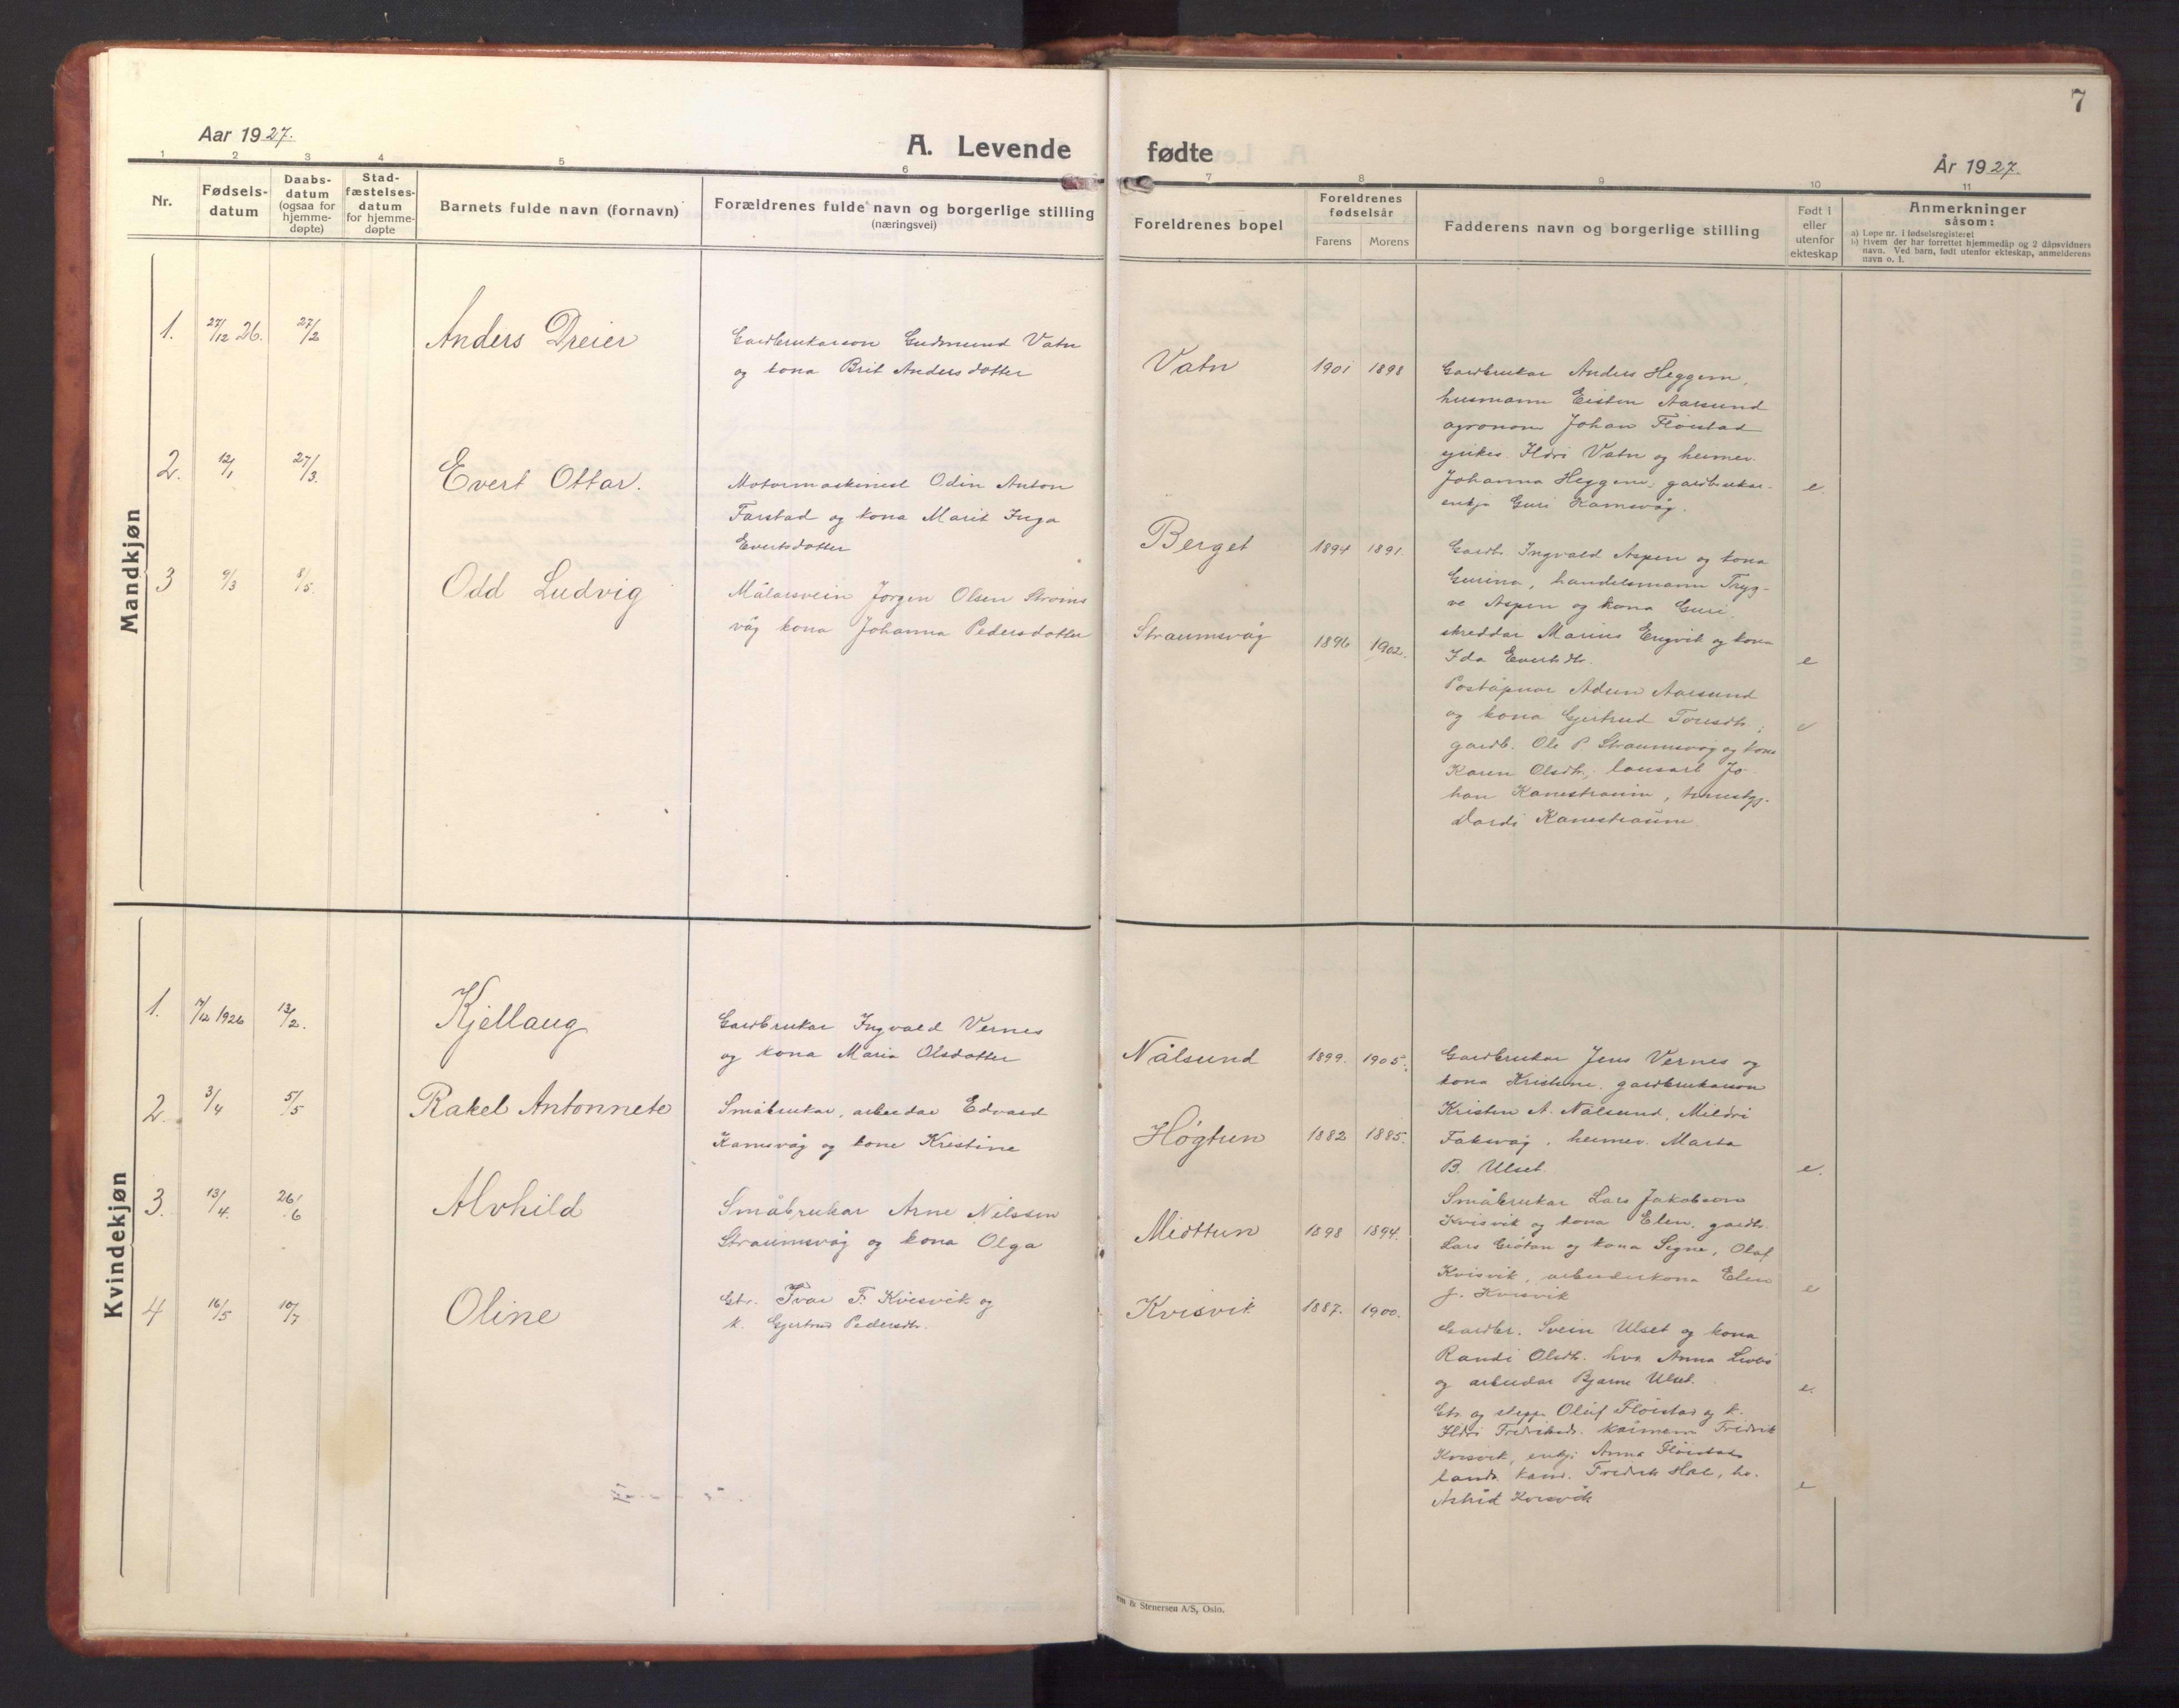 Aar 1927.
A. Levende
1 2 3 4 5 6
Nr.
Fødsels-
datum
Daabs-
datum
(ogsaa for
hjemme-
døpte)
Stad-
fæstelses-
datum
for hjemme-
døpte
Barnets fulde navn (fornavn)
Forældrenes fulde navn og borgerlige stilling
(næringsvei)
Mandkjøn
1. 27/12 26. 27/2 Anders Dreier
Gardbrukarson Gudmund Vatn
og kona Brit Andersdotter
2. 12/1 27/3. Evert Ottar.
Motormaskinist Odin Anton
Farstad og kona Marit Inga
Evertsdotter
3 9/3 8/5. Odd Ludvig
Målarsvein Jørgen Olsen Straums
våg kona Johanna Pedersdotter
Kvindekjøn
1. 17/12 1926 13/2. Kjellaug
Gardbrukar Ingvald Vernes
og kona Maria Olsdotter
2. 3/4 5/5 Rakel Antonnete
Småbrukar, arbeidar Edvard
Kamsvåg og kone Kristine
3. 13/4. 26/6 Alvhild
Småbrukar Arne Nilssen
Straumsvåg og kona Olga
4 16/5 10/7 Oline
Gbr. Ivar F. Kvisvik og
k. Gjertrud Pedersdtr.
7
fødte
År 1927.
7 8 9 10 11
Foreldrenes bopel
Foreldrenes
fødselsår
Farens Morens
Fadderens navn og borgerlige stilling
Født i
eller
utenfor
ekteskap
Anmerkninger
såsom:
a) Løpe nr. i fødselsregisteret
b) Hvem der har forrettet hjemmedåp og 2 dåpsvidners
navn. Ved barn, født utenfor ekteskap, anmelderens
navn o. l.
Vatn 1901 1898
Gardbrukar Anders Heggem,
husmann Eisten Aarsund
agronom Johan Fløistad
Ildri Vatn og heimev.
Johanna Heggem, gardbrukar-
enkja Guri Kamsvåg. e.
Berget 1894 1891.
Gardb. Ingvald Aspen og kona
Gurina, handelsmann Tryg-
ve Aspen og kona Guri,
skreddar Marius Engvik og kona
Ida Evertsdtr. e
Straumsvåg 1896 1902.
Poståpnar Adun Aarsund
og kona Gjertrud Toresdtr; e
gardb. Ole P. Straumsvåg og kona
Karen Olsdtr; lausarb Jo-
han Kanestraum,
Dordi Kanestraum.
Nålsund 1899. 1905.
Gardbrukar Jens Vernes og
kona Kristine, gardbrukarson
Kristen A. Nålsund, Mildri
Faksvåg, heimev. Marta
B. Ulset. e.
Høgtun 1882 1885.
Småbrukar Lars Jakobson
Kvisvik og kona Elen, gardb.
Lars Grötan og kona Signe, Olaf
Kvisvik, arbeiderkona Elen
J. Kvisvik e
Midttun 1898 1894.
Gardbr. Svein Ulset og kona
Randi Olsdtr. Anna
og arbeidar Bjarne Ulset. e.
Kvisvik 1887. 1900.
Gbr. og Oluf Fløistad og k.
Ildri Fredriksdtr. Fredrik
Kvisvik, enkj. Anna Fløistad
kand. Fredrik Hol,
Astrid Kvisvik e
& Stenersen A/S, Oslo.